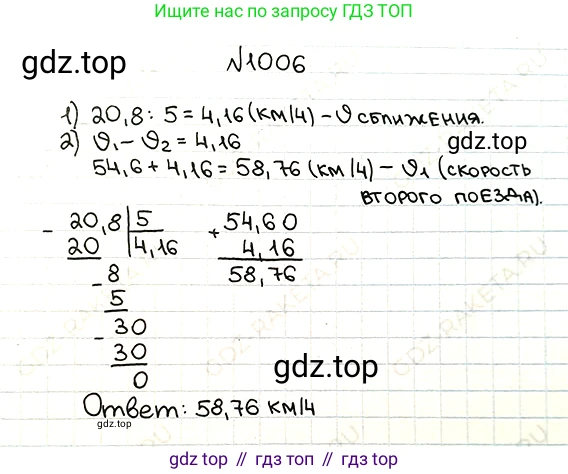 Ищите нас по запросу ГДЗ ТОП
gdz.top
№1006
1) 20,8 : 5 = 4,16 (км/ч) – υ сближения.
2) υ₁ – υ₂ = 4,16
54,6 + 4,16 = 58,76 (км/ч) – υ₁ (скорость
второго поезда).
- 20,8 | 5
20 | 4,16
- 8
5
- 30
30
0
+ 54,60
4,16
58,76
gdz.top
Ответ: 58,76 км/ч
gdz.top
gdz.top // гдз.топ // gdz.top
GDZ-RAKETA.RU